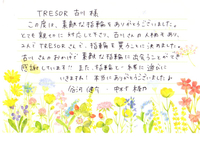 TRESOR 古川 様
この度は、素敵な指輪をありがとうございました。
とても親せつに対応して下さり、古川さんの人柄もあり、
2人で TRESORさんで、指輪を買うことに決めました。
古川さんのおかげで素敵な指輪に出会うことができ
感謝しています!! また、指輪と一緒に遊びに
いきますね! 本当にありがとうございました♪